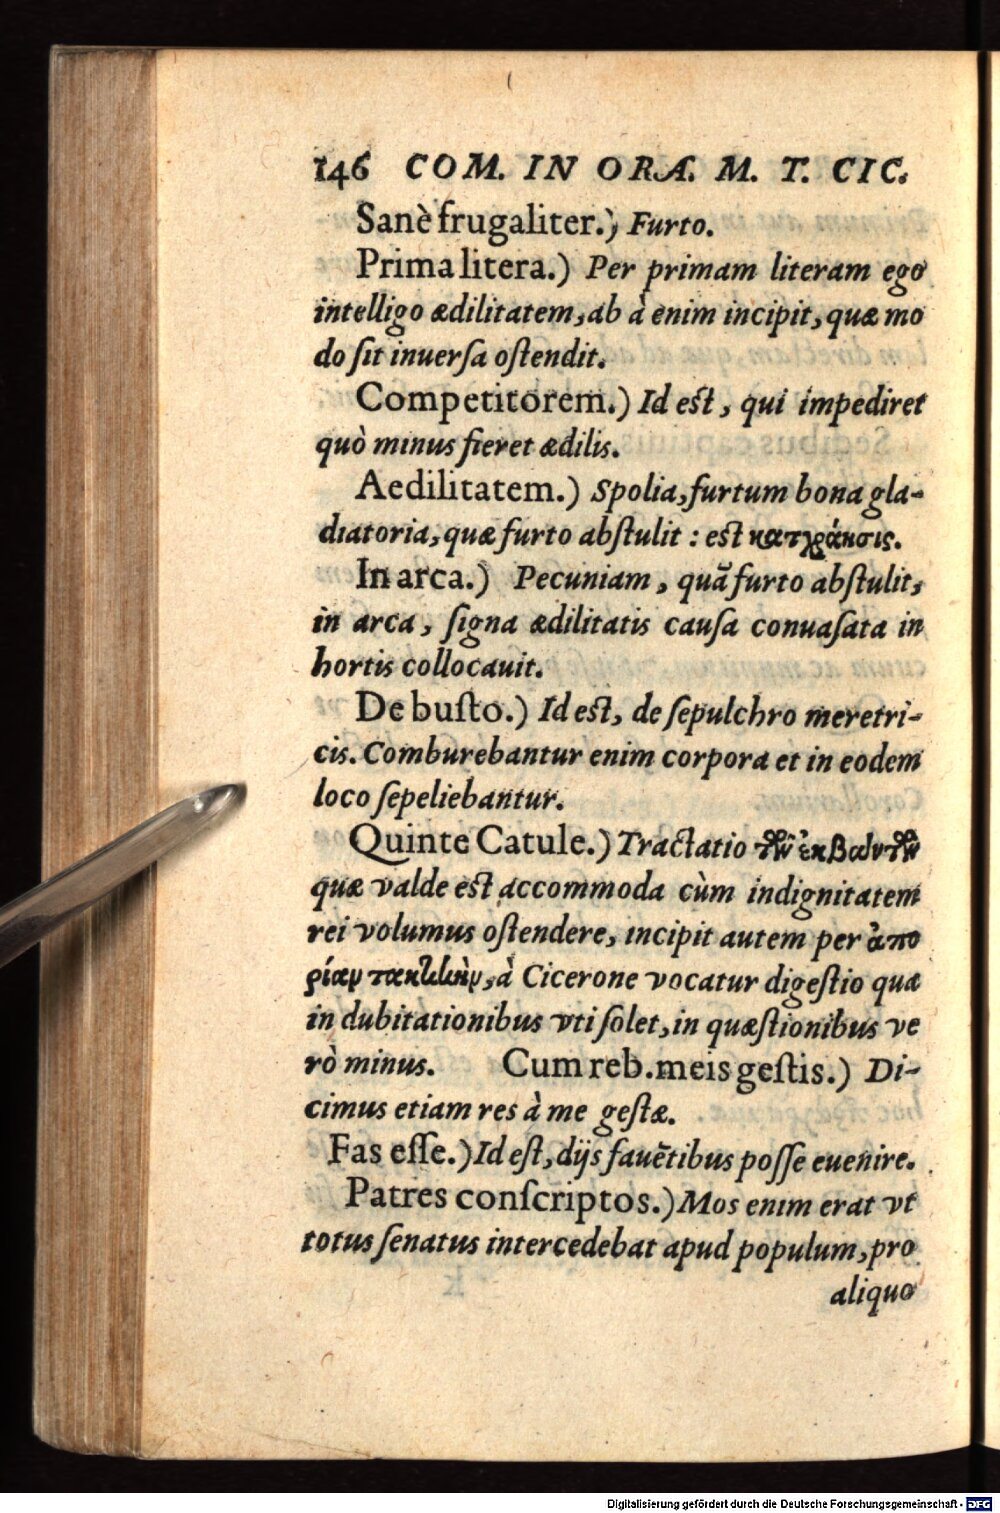 146 COM. IN ORA. M. T. CIC.
Sanè frugaliter.) Furto.
Prima litera.) Per primam literam ego
intelligo ædilitatem, ab à enim incipit, quæ mo
do ſit inuerſa oſtendit.
Competitorem.) Id eſt, qui impediret
quò minus fieret ædilis.
Aedilitatem.) Spolia, furtum bona gla-
diatoria, quæ furto abſtulit : eſt
In arca.) Pecuniam, quã furto abſtulit,
in arca, ſigna ædilitatis cauſa conuaſata in
hortis collocauit.
De buſto.) Id eſt, de ſepulchro meretri-
cis. Comburebantur enim corpora et in eodem
loco ſepeliebantur.
Quinte Catule.) Tractatio
quæ valde eſt accommoda cùm indignitatem
rei volumus oſtendere, incipit autem per ἀπο
ρίαν , à Cicerone vocatur digeſtio qua
in dubitationibus vti ſolet, in quæſtionibus ve
rò minus. Cum reb. meis geſtis.) Di-
cimus etiam res à me geſtæ.
Fas eſſe.) Id eſt, dijs fauẽtibus poſſe euenire.
Patres conſcriptos.) Mos enim erat vt
totus ſenatus intercedebat apud populum, pro
aliquo
Digitalisierung gefördert durch die Deutsche Forschungsgemeinschaft - DFG